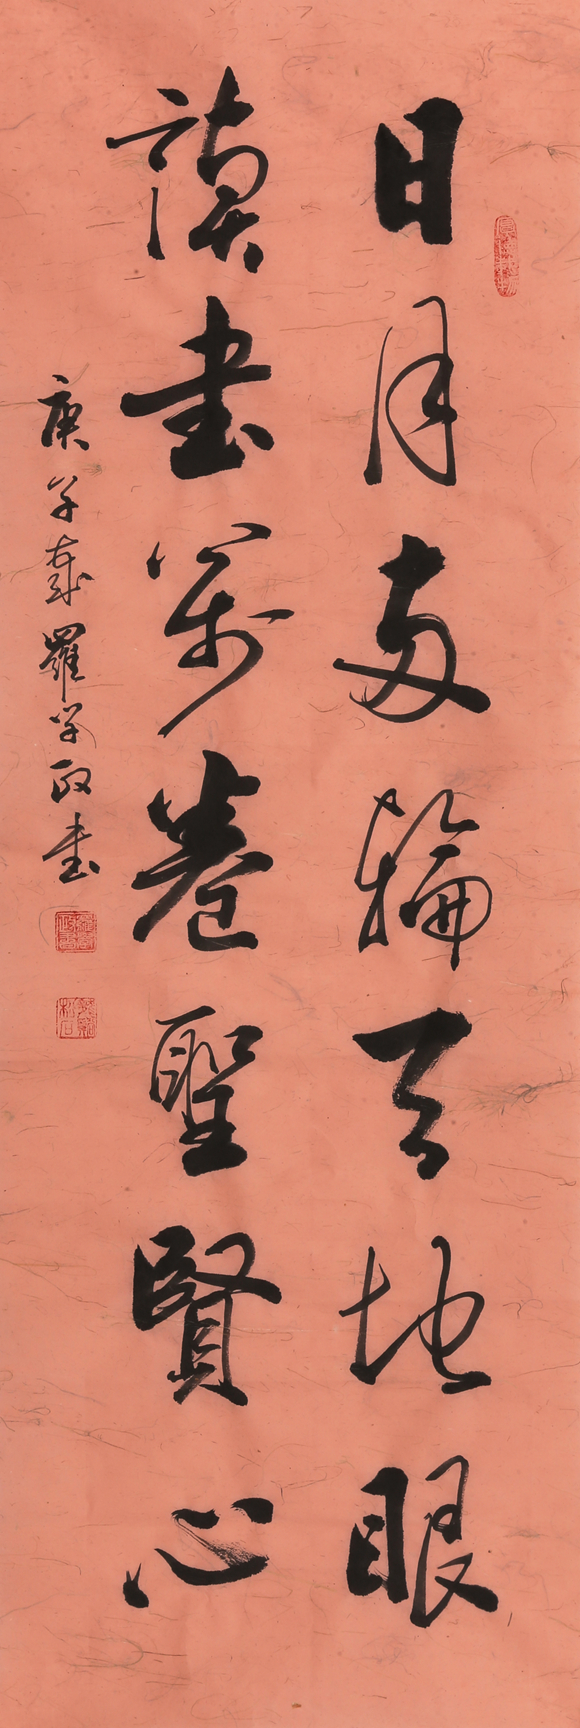 日月兩輪天地眼
讀書萬卷聖賢心
庚子歲羅學政書